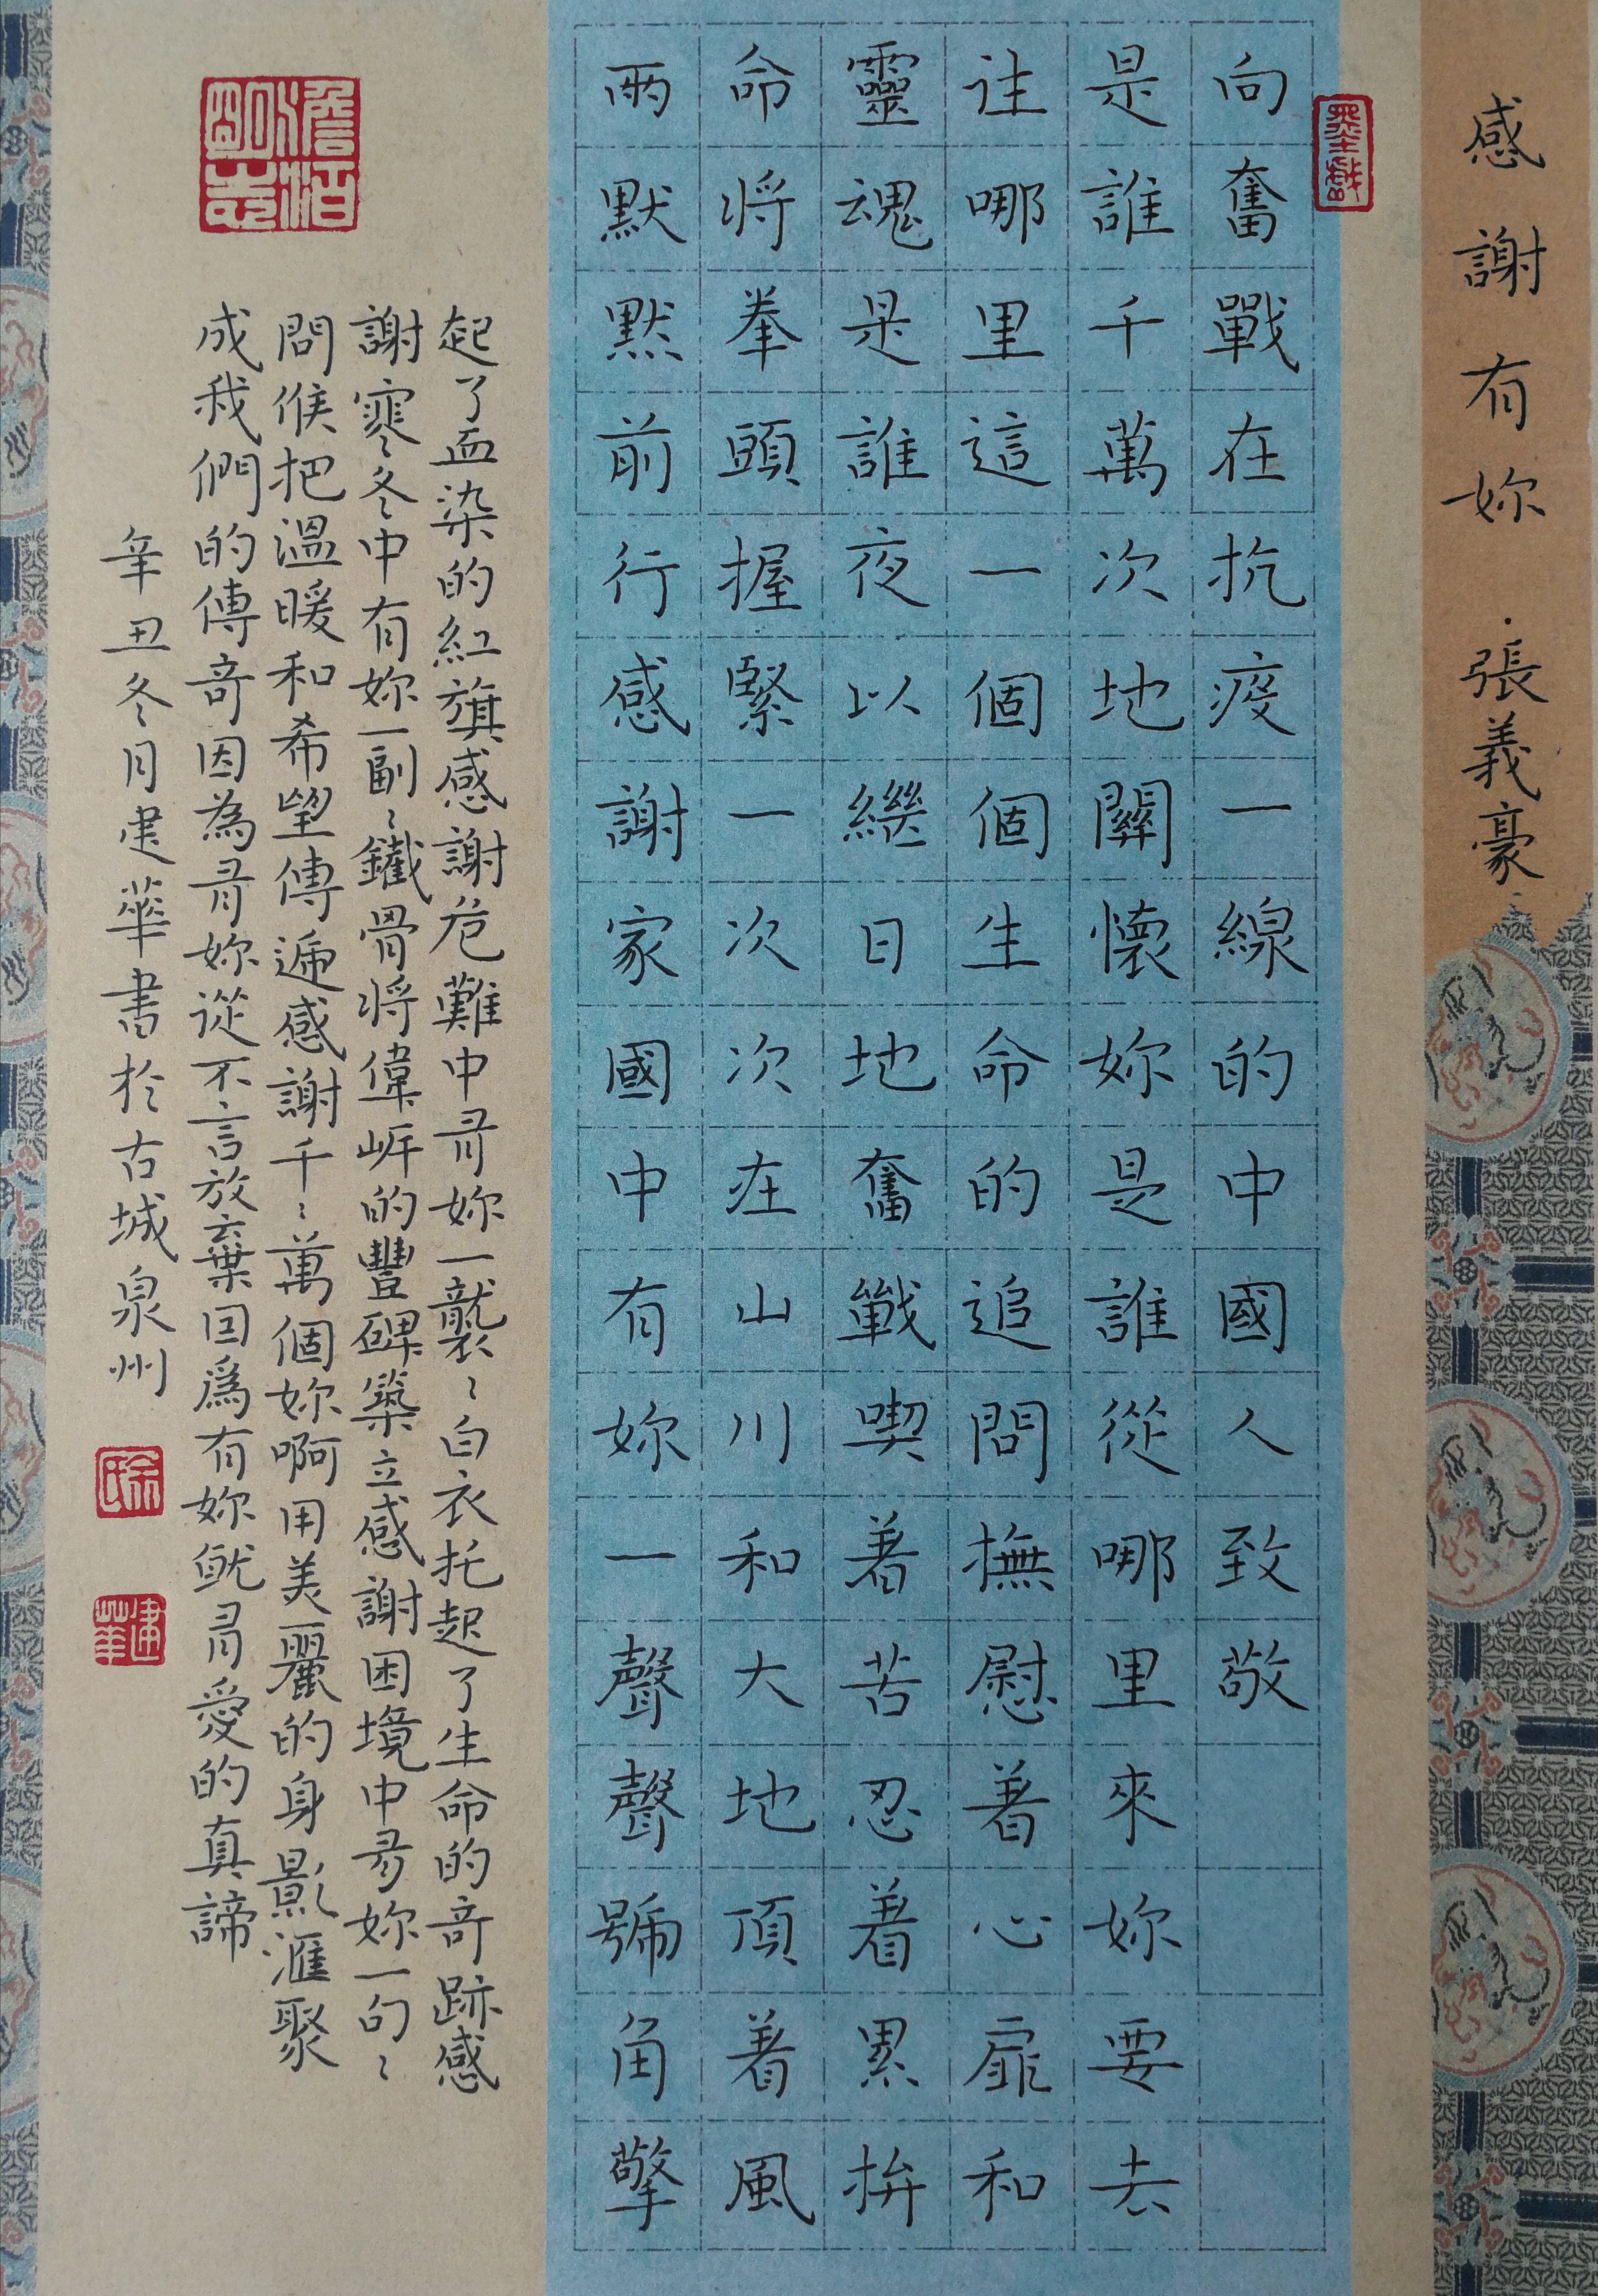 感謝有妳·張義豪
墨戲
向奮戰在抗疫一線的中國人致敬
是誰千萬次地關懷妳是誰從哪里來妳要去
往哪里這一個個生命的追問撫慰着心扉和
靈魂是誰夜以繼日地奮戰喫着苦忍着累拚
命將拳頭握緊一次次在山川和大地頂着風
雨默默前行感謝家國中有妳一聲聲號角擎
起了血染的紅旗感謝危難中有妳一襲〻白衣托起了生命的奇跡感
謝寒冬中有妳一副〻鐵骨將偉岸的豐碑築立感謝困境中有妳一句〻
問候把溫暖和希望傳遞感謝千〻萬個妳啊用美麗的身影滙聚
成我們的傳奇因為有妳從不言放棄因爲有妳就有愛的真諦
辛丑冬月建華書於古城泉州
澹泊明志
徐氏
建華